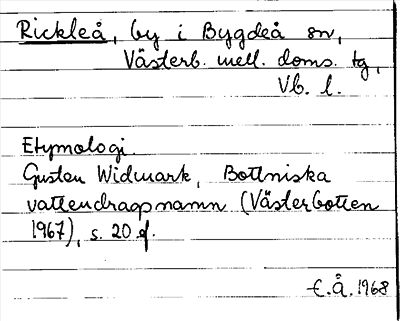 Rickleå, by i Bygdeå sn,
Västerb. mell. doms. tg,
Vb. l.
Etymologi.
Gusten Widmark, Bottniska
vattendragsnamn (Västerbotten
1967), s. 20 f.
E.Å. 1968